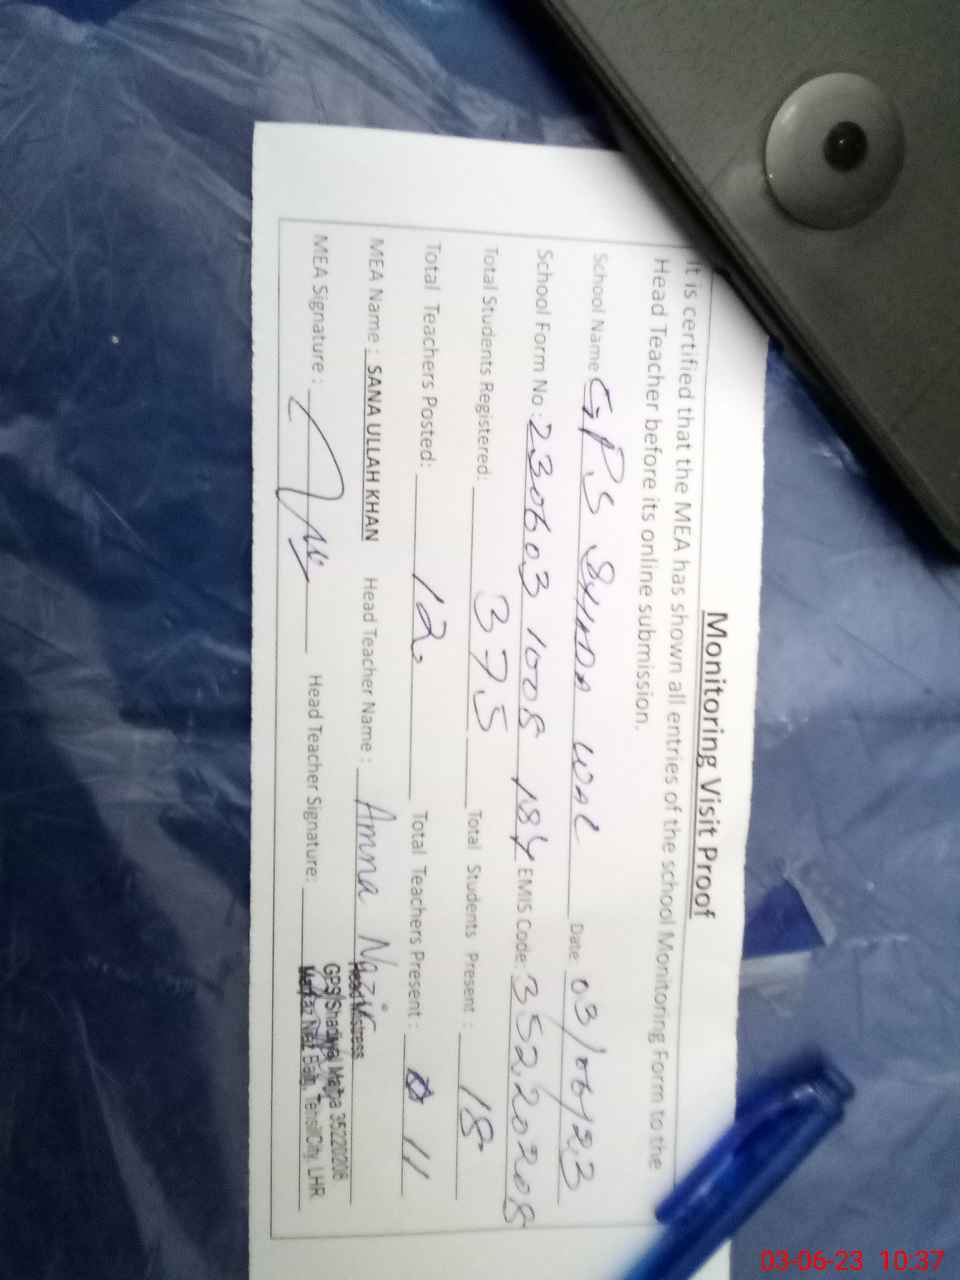 Monitoring Visit Proof
It is certified that the MEA has shown all entries of the school Monitoring Form to the
Head Teacher before its online submission.
School Name GPS Date 03/06/23
School Form No : 230603 1008 184 EMIS Code: 35220208
Total Students Registered: 375 Total Students Present : 18
Total Teachers Posted: 12 Total Teachers Present : 11
MEA Name : SANA ULLAH KHAN Head Teacher Name : Amna Nazir
MEA Signature : Head Teacher Signature:
Head Mistress
GPS 35220208
LHR
03-06-23 10:37